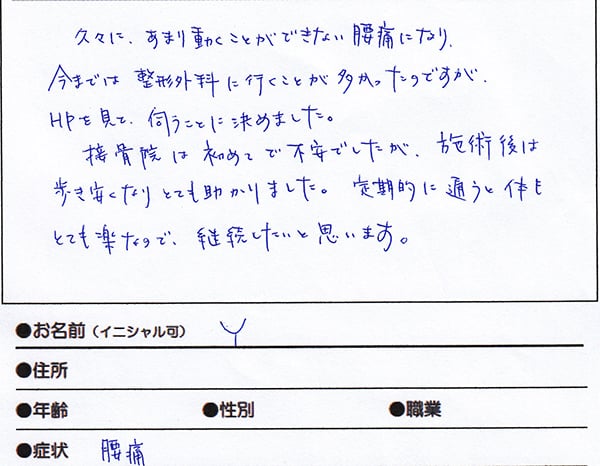 久々に、あまり動くことができない腰痛になり、
今までは整形外科に行くことが多かったのですが、
HPを見て、伺うことに決めました。
接骨院は初めてで不安でしたが、施術後は
歩き安くなりとても助かりました。定期的に通うと体も
とても楽なので、継続したいと思います。
●お名前（イニシャル可） Y
●住所
●年齢 ●性別 ●職業
●症状 腰痛